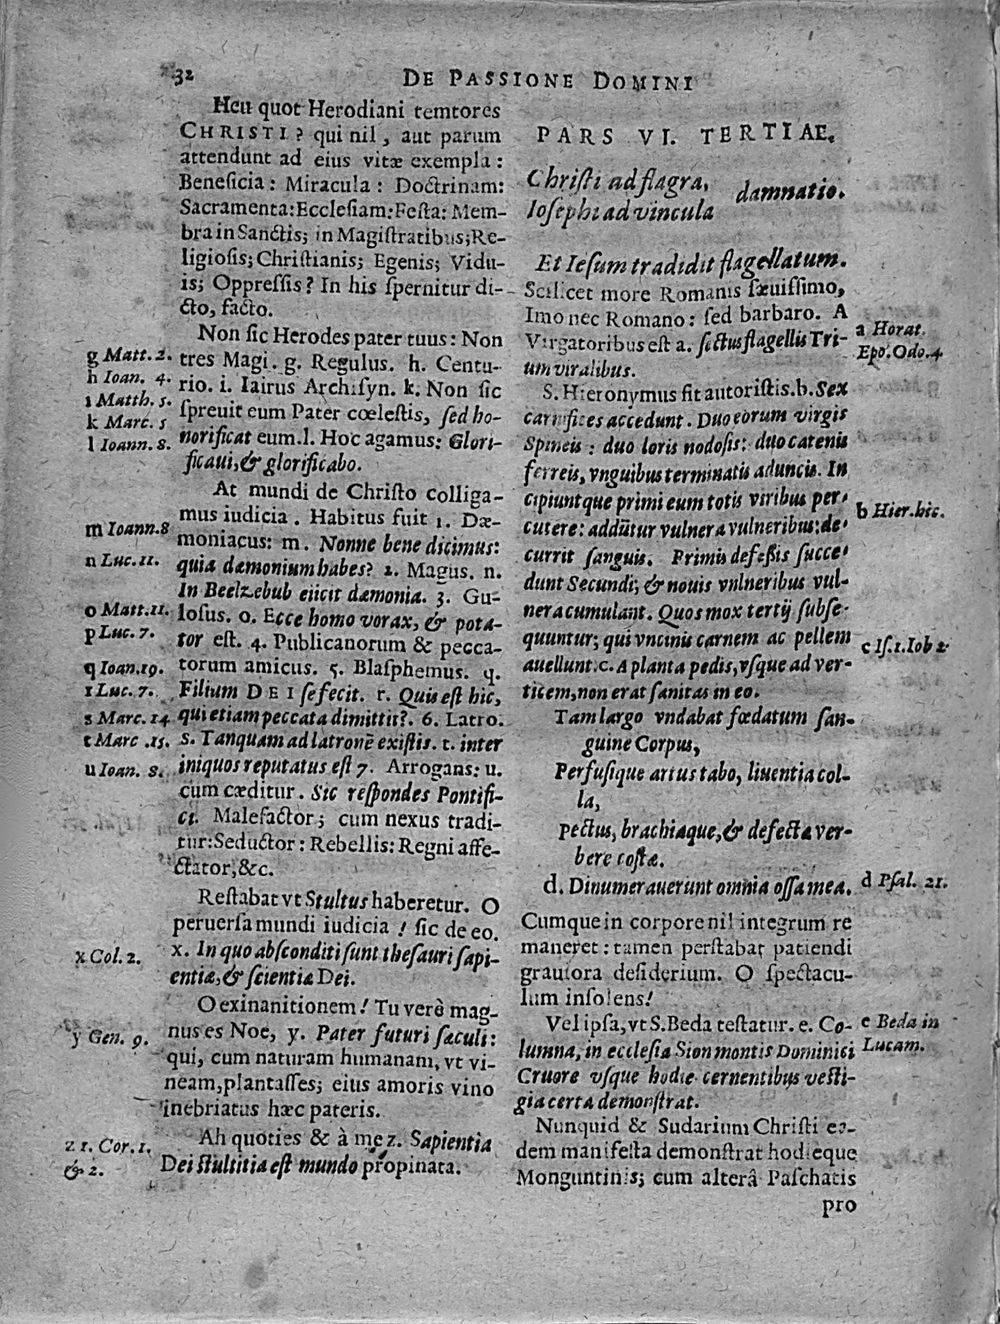 32
DE PASSIONE DOMINI
Heu quot Herodiani temtores
CHRISTI? qui nil, aut parum
attendunt ad eius vitæ exempla:
Beneficia: Miracula: Doctrinam:
Sacramenta: Ecclesiam: Festa: Mem-
bra in Sanctis; in Magistratibus; Re-
ligiosis; Christianis; Egenis; Vidu-
is; Oppressis? In his spernitur di-
cto, facto.
Non sic Herodes pater tuus: Non
tres Magi. g. Regulus. h. Centu-
rio. i. Iairus Archisyn. k. Non sic
spreuit eum Pater cœlestis, sed ho-
norificat eum. l. Hoc agamus: Glori-
ficaui, & glorificabo.
At mundi de Christo colliga-
mus iudicia. Habitus fuit 1. Dæ-
moniacus: m. Nonne bene dicimus:
quia dæmonium habes? 2. Magus. n.
In Beelzebub eiicit dæmonia. 3. Gu-
losus. o. Ecce homo vorax, & pota-
tor est. 4. Publicanorum & pecca-
torum amicus. 5. Blasphemus. q.
Filium DEI se fecit. r. Quis est hic,
qui etiam peccata dimittit?. 6. Latro.
s. Tanquam ad latronē existis. t. inter
iniquos reputatus est 7. Arrogans: u.
cum cæditur. Sic respondes Pontifi-
ci. Malefactor; cum nexus tradi-
tur: Seductor: Rebellis: Regni affe-
ctator, &c.
Restabat vt Stultus haberetur. O
peruersa mundi iudicia! sic de eo.
x. In quo absconditi sunt thesauri sapi-
entiæ, & scientiæ Dei.
O exinanitionem! Tu verè mag-
nus es Noë, y. Pater futuri sæculi:
qui, cum naturam humanam, vt vi-
neam, plantasses; eius amoris vino
inebriatus hæc pateris.
Ah quoties & à me z. Sapientia
Dei stultitia est mundo propinata.
g Matt. 2.
h Ioan. 4.
i Matth. 5.
k Marc. 5
l Ioann. 8.
m Ioann. 8
n Luc. 11.
o Matt. 11.
p Luc. 7.
q Ioan. 19.
r Luc. 7.
s Marc. 14
t Marc. 15.
u Ioan. 8.
x Col. 2.
y Gen. 9.
z 1. Cor. 1.
& 2.
PARS VI. TERTIAE.
Christi ad flagra,
Iosephi ad vincula
damnatio.
Et Iesum tradidit flagellatum.
Scilicet more Romanis sæuissimo,
Imo nec Romano: sed barbaro. A
Virgatoribus est a. sectus flagellis Tri-
um viralibus.
S. Hieronymus sit autor istis. b. Sex
carnifices accedunt. Duo eorum virgis
Spineis: duo loris nodosis: duo catenis
ferreis, vnguibus terminatis aduncis. In
cipiuntque primi eum totis viribus per-
cutere: addūtur vulnera vulneribus: de-
currit sanguis. Primis defessis succe-
dunt Secundi; & nouis vulneribus vul-
nera cumulant. Quos mox tertij subse-
quuntur; qui vncinis carnem ac pellem
auellunt. c. A planta pedis, vsque ad ver-
ticem, non erat sanitas in eo.
Tam largo vndabat fœdatum san-
guine Corpus,
Perfusique artus tabo, liuentia col-
la,
Pectus, brachiaque, & defecta ver-
bere costæ.
d. Dinumerauerunt omnia ossa mea.
Cumque in corpore nil integrum re
maneret: tamen perstabat patiendi
grauiora desiderium. O spectacu-
lum insolens!
Vel ipsa, vt S. Beda testatur. e. Co-
lumna, in ecclesia Sion montis Dominici
Cruore vsque hodie cernentibus vesti-
gia certa demonstrat.
Nunquid & Sudarium Christi ea-
dem manifesta demonstrat hodieque
Monguntinis; cum alterâ Paschatis
pro
a Horat.
Epo. Odo. 4
b Hier. hic.
c Is. 1. Iob 2.
d Psal. 21.
e Beda in
Lucam.